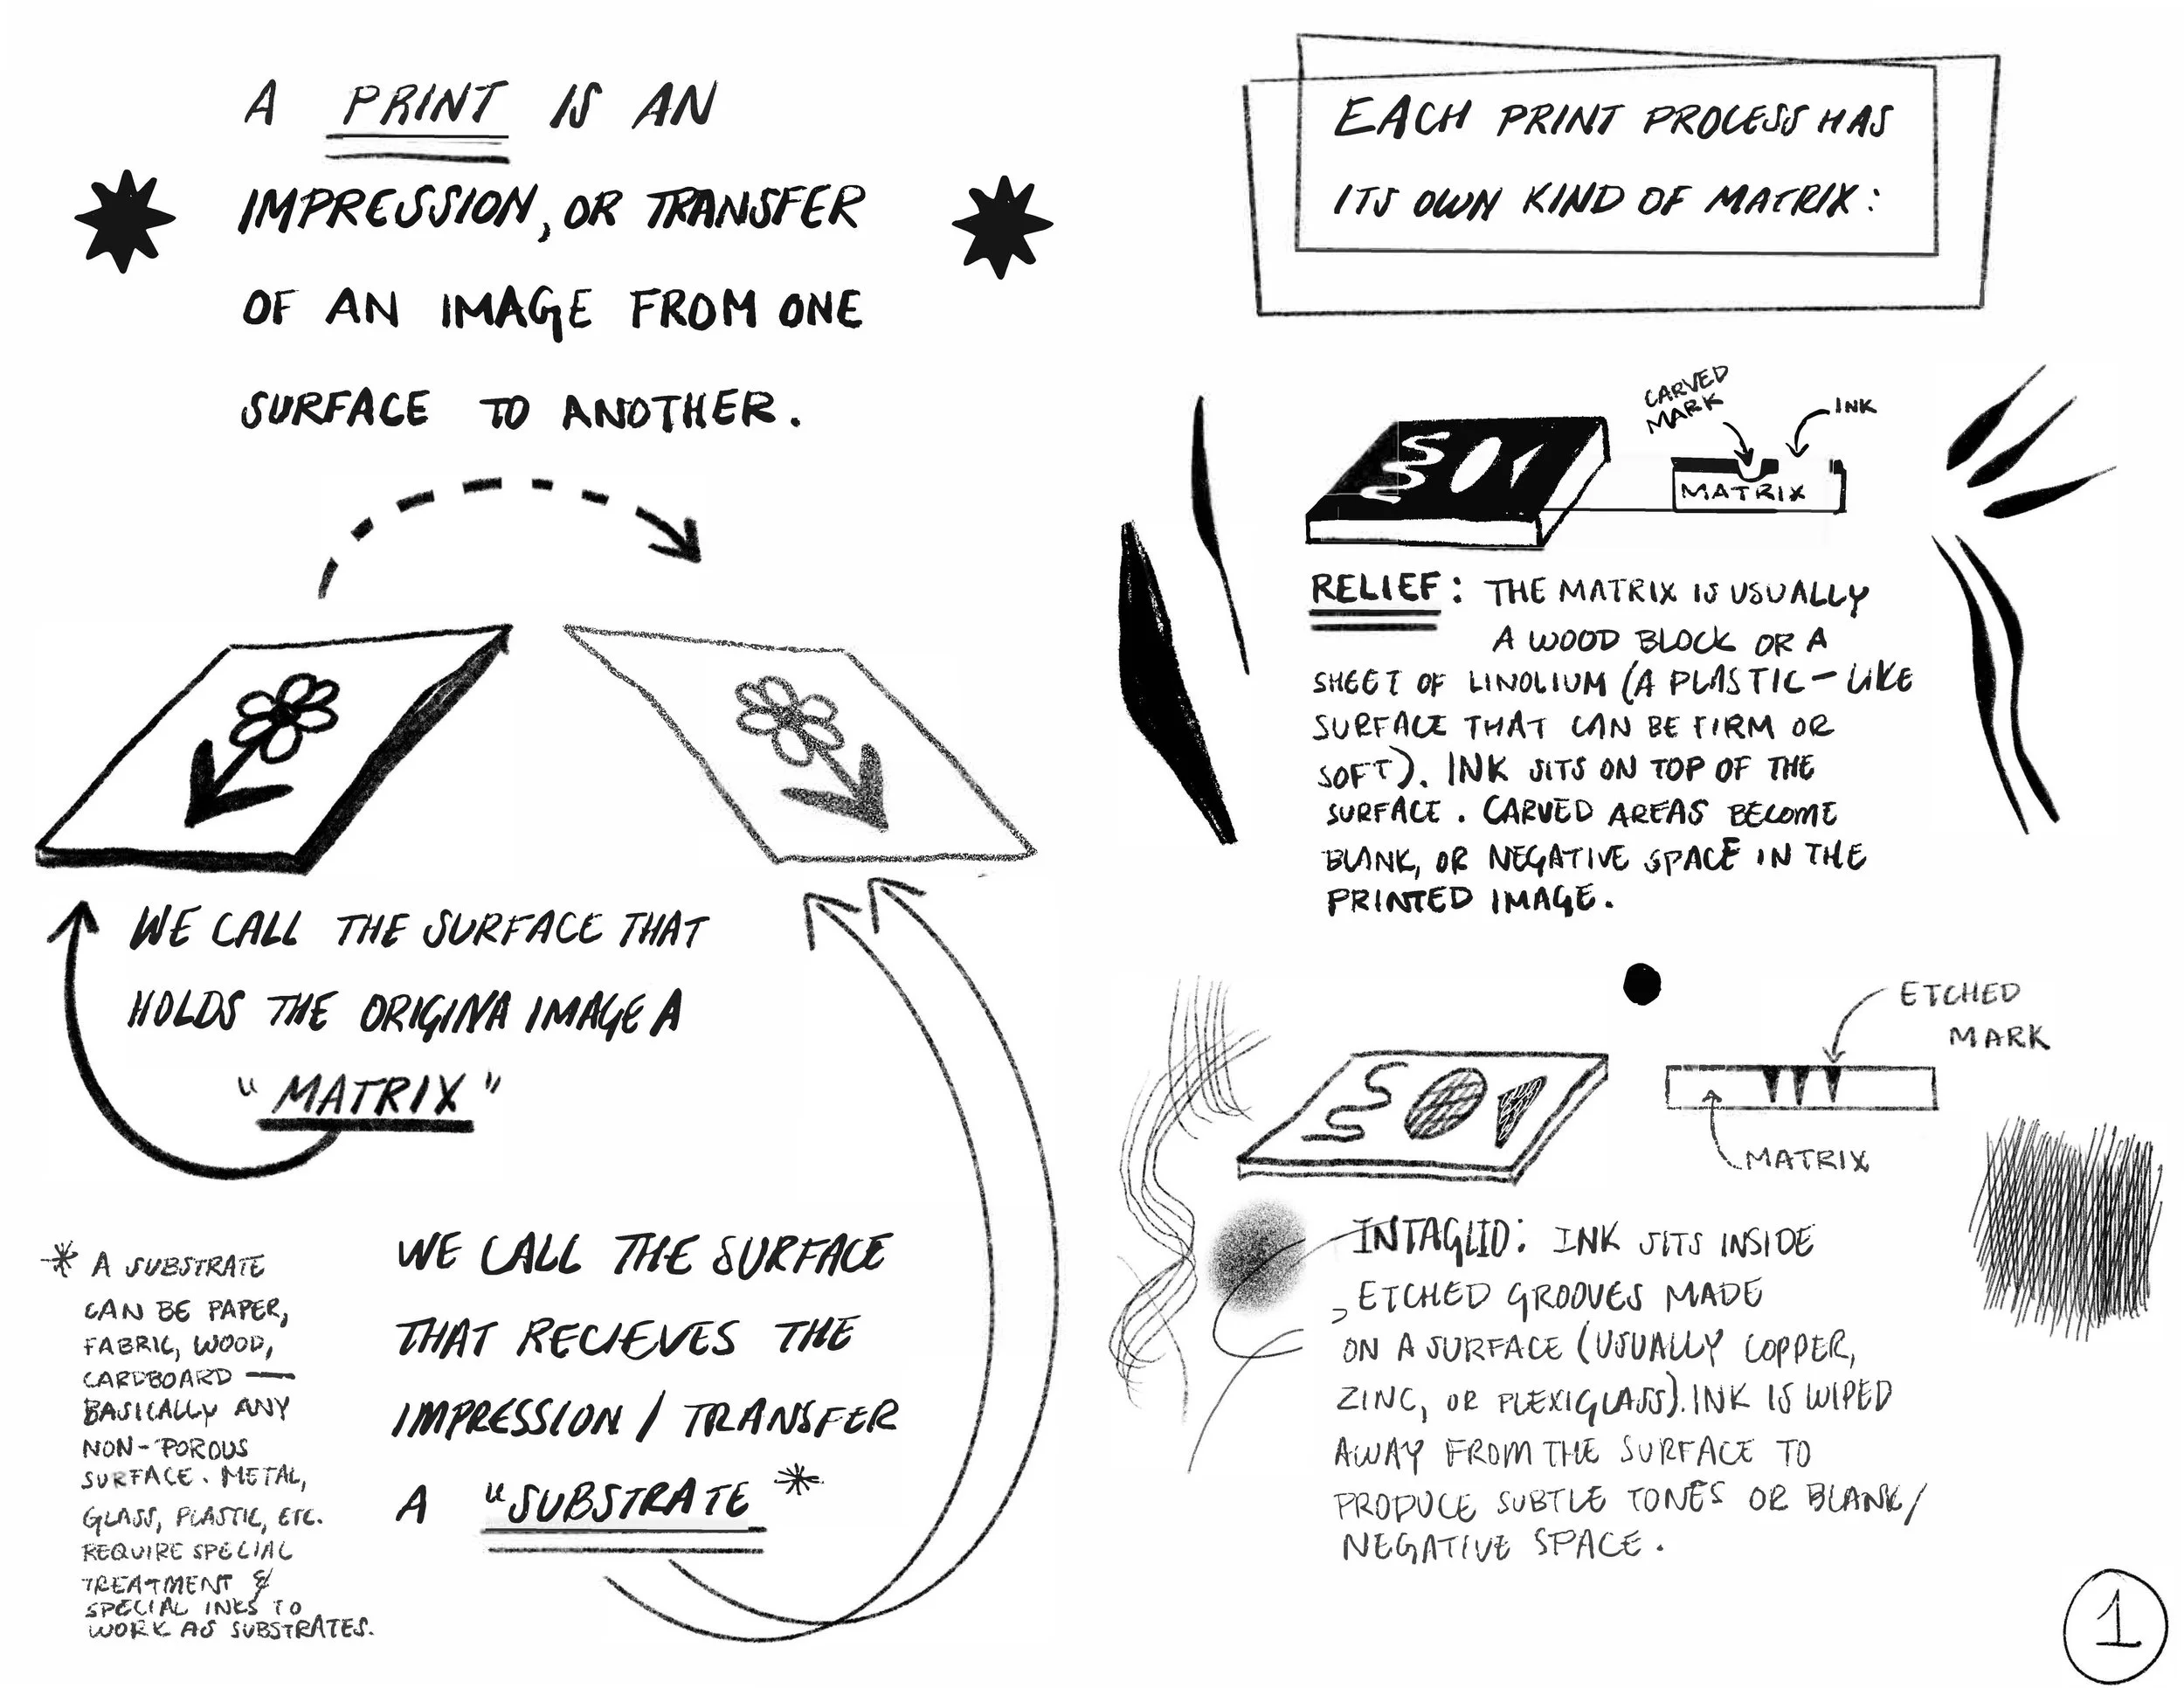 A PRINT IS AN
IMPRESSION, OR TRANSFER
OF AN IMAGE FROM ONE
SURFACE TO ANOTHER.
WE CALL THE SURFACE THAT
HOLDS THE ORIGINA IMAGE A
"MATRIX"
WE CALL THE SURFACE
THAT RECIEVES THE
IMPRESSION / TRANSFER
A "SUBSTRATE *
* A SUBSTRATE
CAN BE PAPER,
FABRIC, WOOD,
CARDBOARD —
BASICALLY ANY
NON-POROUS
SURFACE. METAL,
GLASS, PLASTIC, ETC.
REQUIRE SPECIAL
TREATMENT &
SPECIAL INKS TO
WORK AS SUBSTRATES.
EACH PRINT PROCESS HAS
ITS OWN KIND OF MATRIX:
CARVED
MARK
INK
MATRIX
RELIEF: THE MATRIX IS USUALLY
A WOOD BLOCK OR A
SHEET OF LINOLIUM (A PLASTIC-LIKE
SURFACE THAT CAN BE FIRM OR
SOFT). INK SITS ON TOP OF THE
SURFACE. CARVED AREAS BECOME
BLANK, OR NEGATIVE SPACE IN THE
PRINTED IMAGE.
ETCHED
MARK
MATRIX
INTAGLIO: INK SITS INSIDE
, ETCHED GROOVES MADE
ON A SURFACE (USUALLY COPPER,
ZINC, OR PLEXIGLASS). INK IS WIPED
AWAY FROM THE SURFACE TO
PRODUCE SUBTLE TONES OR BLANK/
NEGATIVE SPACE.
1